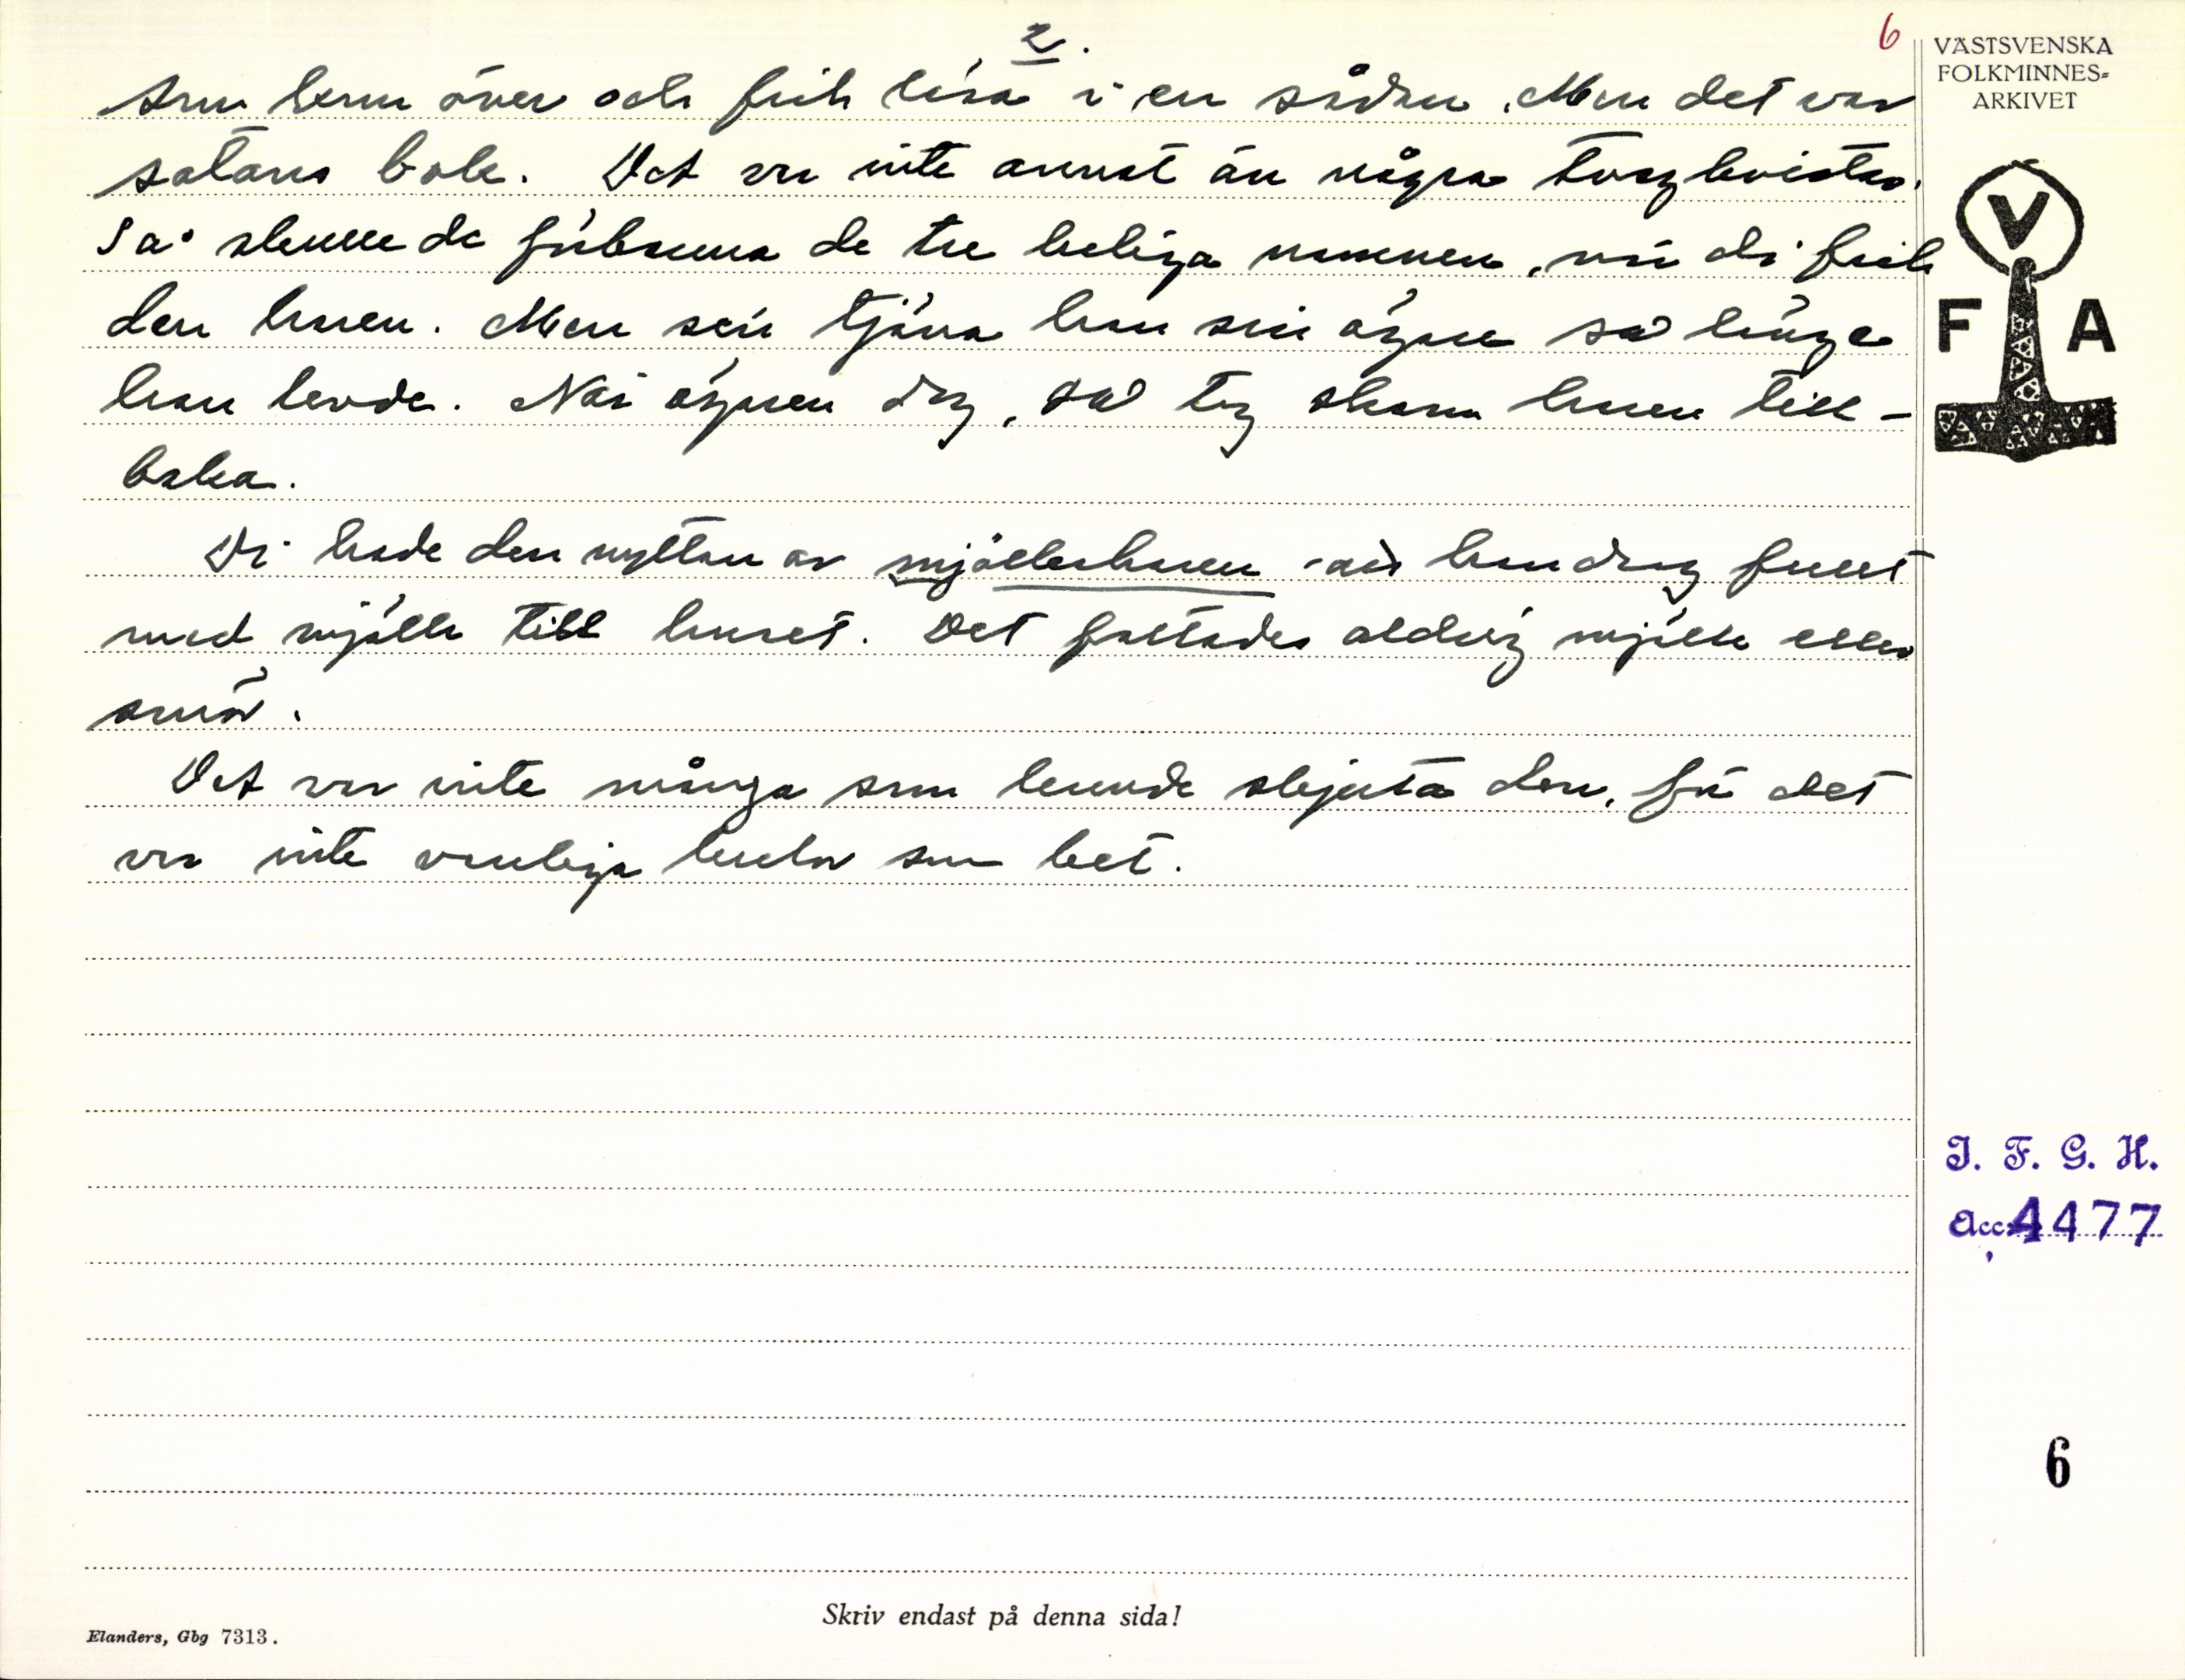 2.
6
VÄSTSVENSKA
FOLKMINNES=
ARKIVET
som kom över och fick läsa i en sådan. Men det var
satans bok. Det va inte annat än några tvagkvistar.
Så skulle de förbanna de tre heliga namnen, när di fick
den haren. Men sen tjäna han sin ägare så länge
han levde. När ägaren dog, så tog skam haren till-
baka.
Di hade den nyttan av mjölkeharen att han drog fullt
med mjölk till huset. Det fattades aldrig mjölk eller
smör.
Det var inte många som kunde skjuta den, för det
va inte vanliga kulor som bet.
V
F A
I. F. G. H.
Acc. 4477
6
Skriv endast på denna sida!
Elanders, Gbg 7313.